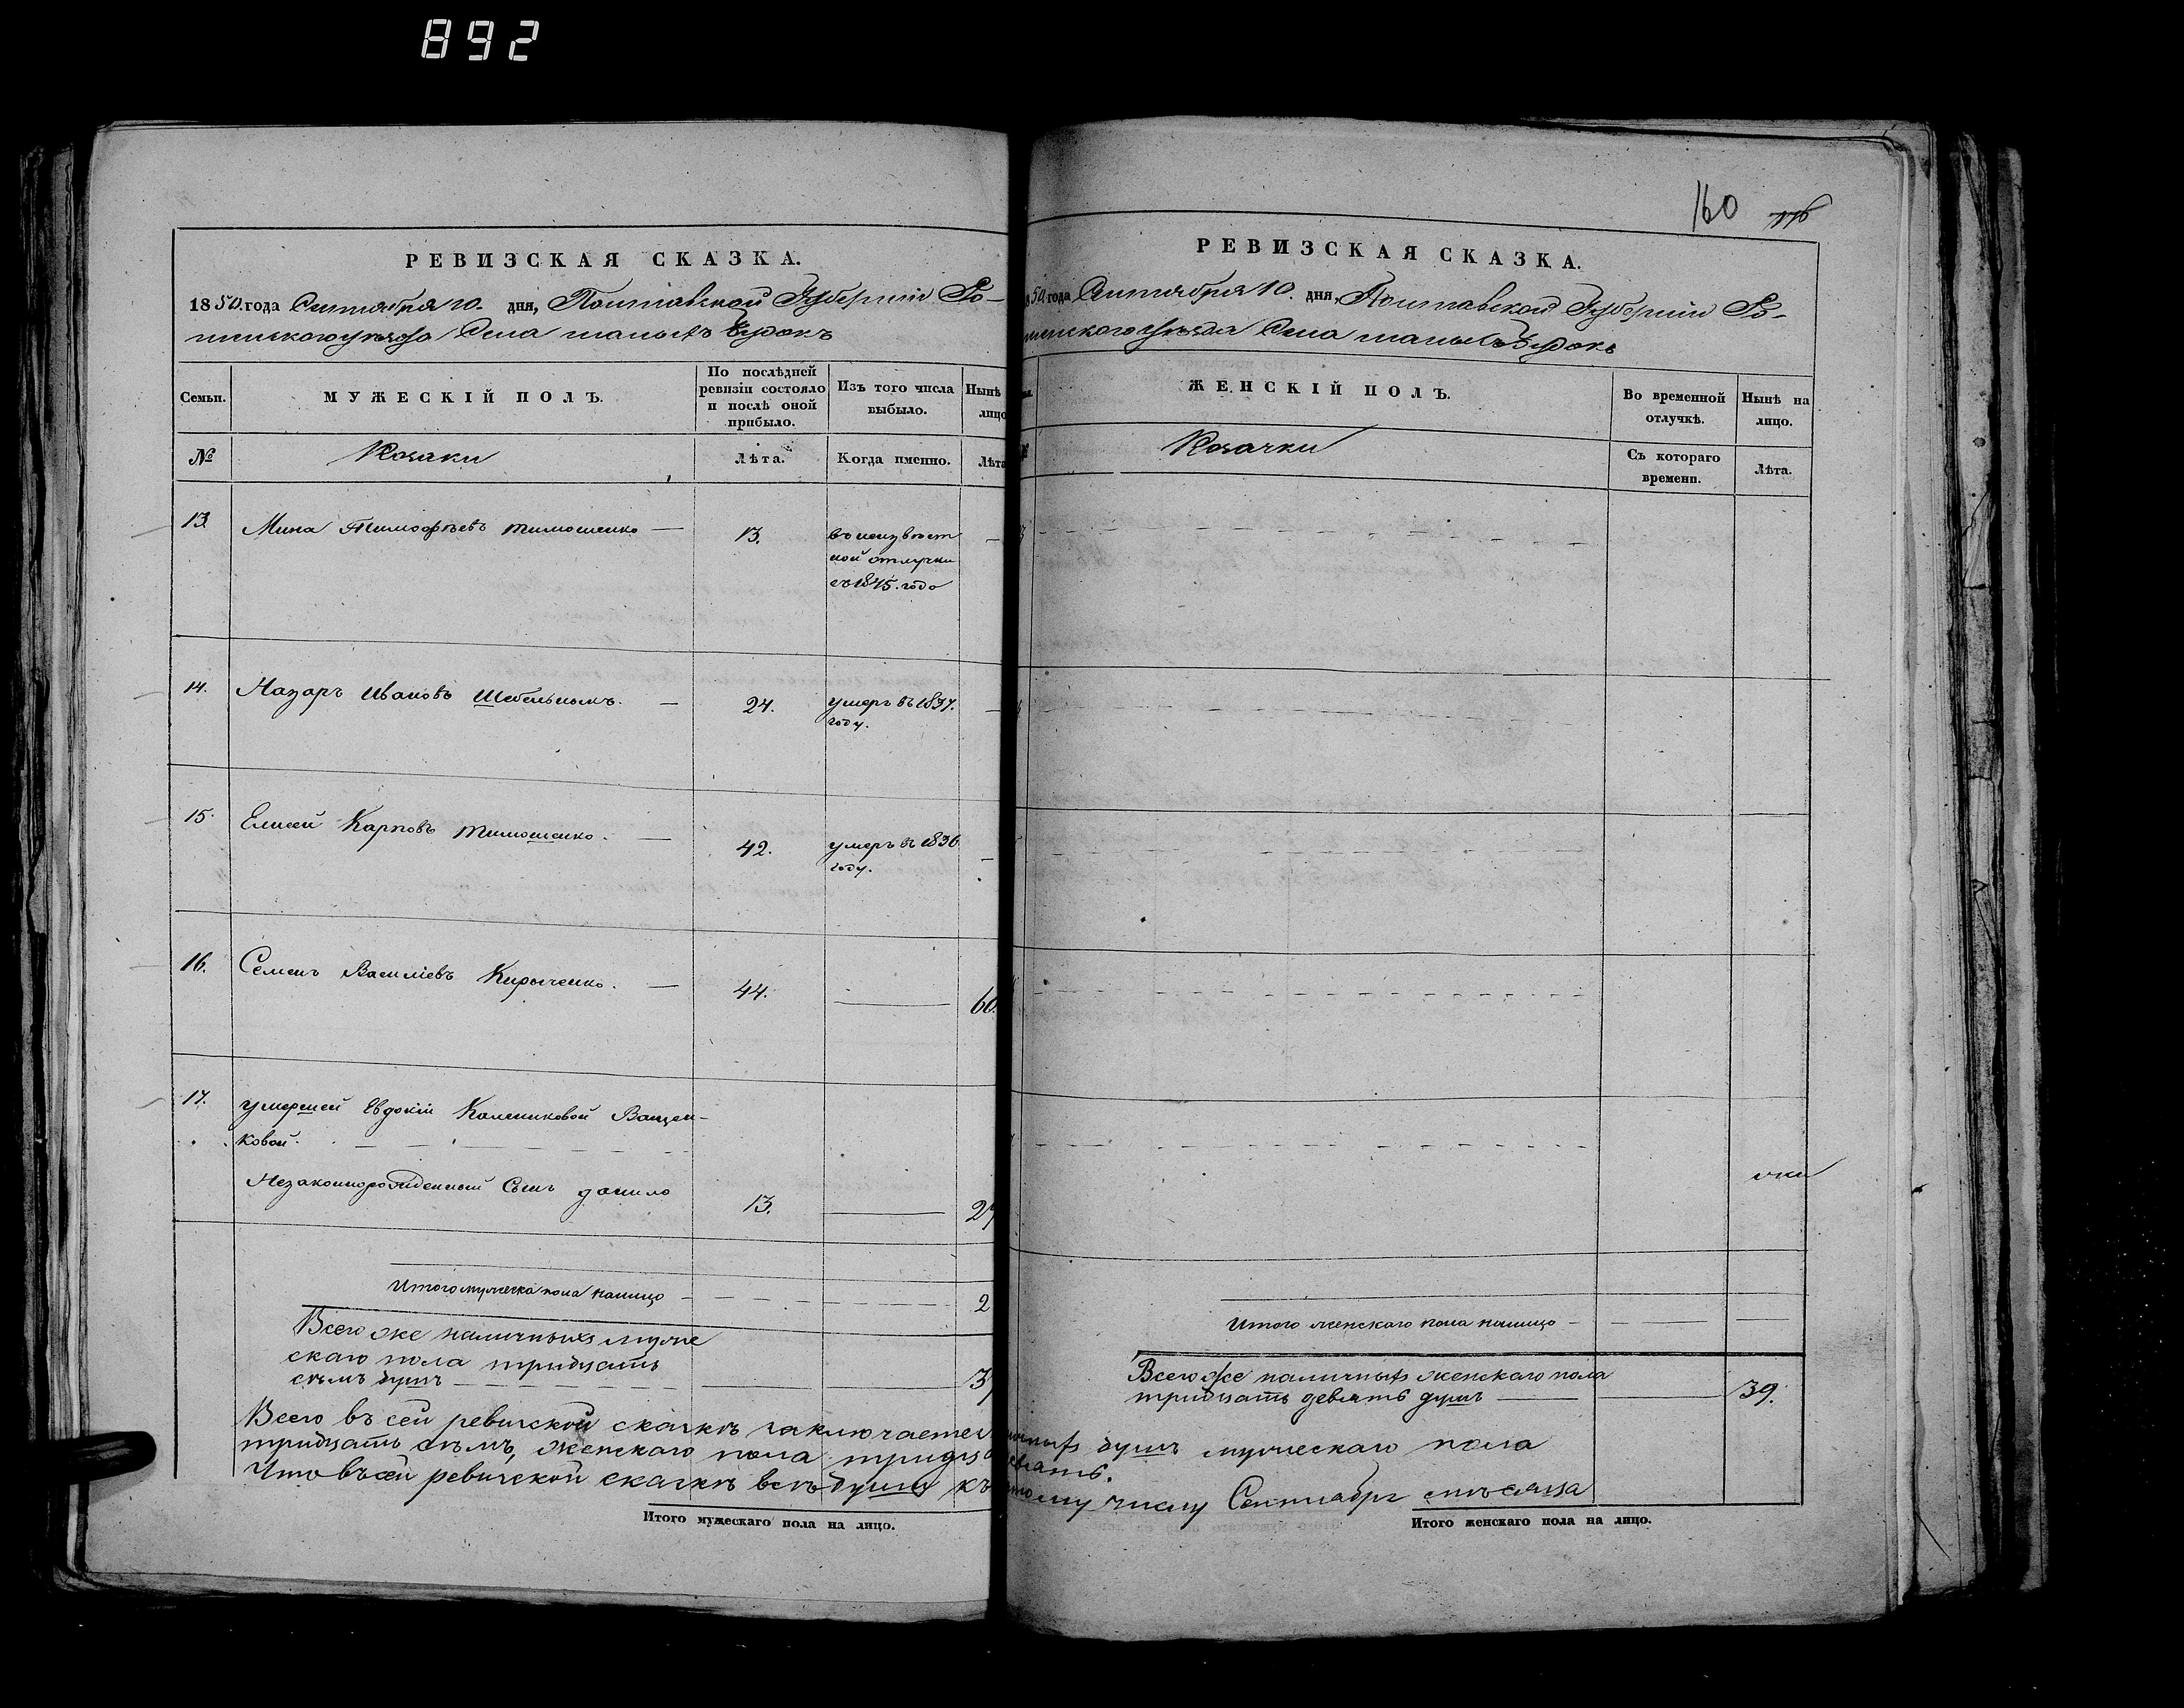 892
РЕВИЗСКАЯ СКАЗКА.
1850. года Сентября 10. дня, Полтавской Губерніи Ро-
менского уезда Села малыхъ Будокъ
Семьи.
МУЖЕСКІЙ ПОЛЪ.
По послѣдней ревизіи состояло и послѣ оной прибыло.
Изъ того числа выбыло.
Нынѣ
лицо
№
Козаки
Лѣта.
Когда именно.
Лѣта
13. Мина Тимофѣевъ Тимошенко — 13. въ неизвѣст
ной отлучки
съ 1845. года
14. Назаръ Ивановъ Шебельникъ. — 24. умеръ въ 1837.
году.
15. Елисей Карповъ Тимошенко. — 42. умеръ въ 1836
году.
16. Семенъ Василіевъ Кириченко. — 44. — 60.
17. умершей Евдокіи Калениковой Ващен-
ковой.
Незаконнорожденный Сынъ данило 13. — 29
Итого мужеска пола налицо 2
Всего же наличныхъ муже
скаго пола тридцать
сѣмъ душъ 37
Всего въ сей ревизской сказкѣ заключается
тридцать сѣмъ, женскаго пола тридца
Что въ сей ревизской сказкѣ всѣ души къ
Итого мужескаго пола на лицо.
160 776
РЕВИЗСКАЯ СКАЗКА.
850 года Сентября 10. дня, Полтавской Губерніи Ро-
менского уезда Села малыхъ Будокъ
ЖЕНСКІЙ ПОЛЪ.
Во временной отлучкѣ.
Нынѣ на лицо.
Козачки
Съ котораго времени.
Лѣта.
Итого женскаго пола налицо
Всего же наличныхъ женскаго пола
тридцать девять душъ 39.
личныхъ душъ мужескаго пола
евять.
тому числу Сентября мѣсяца
Итого женскаго пола на лицо.